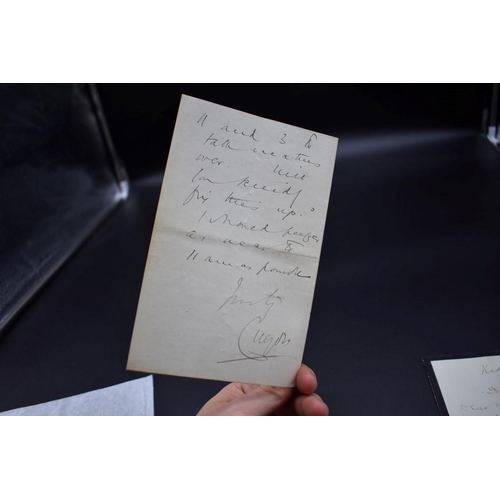 11 and 3 to
talk matters
over. Will
you kindly
fix this up."
I should prefer
as near to
11 am as possible
Curzon